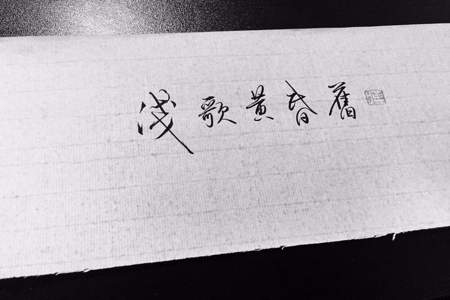 浅歌黄昏舊